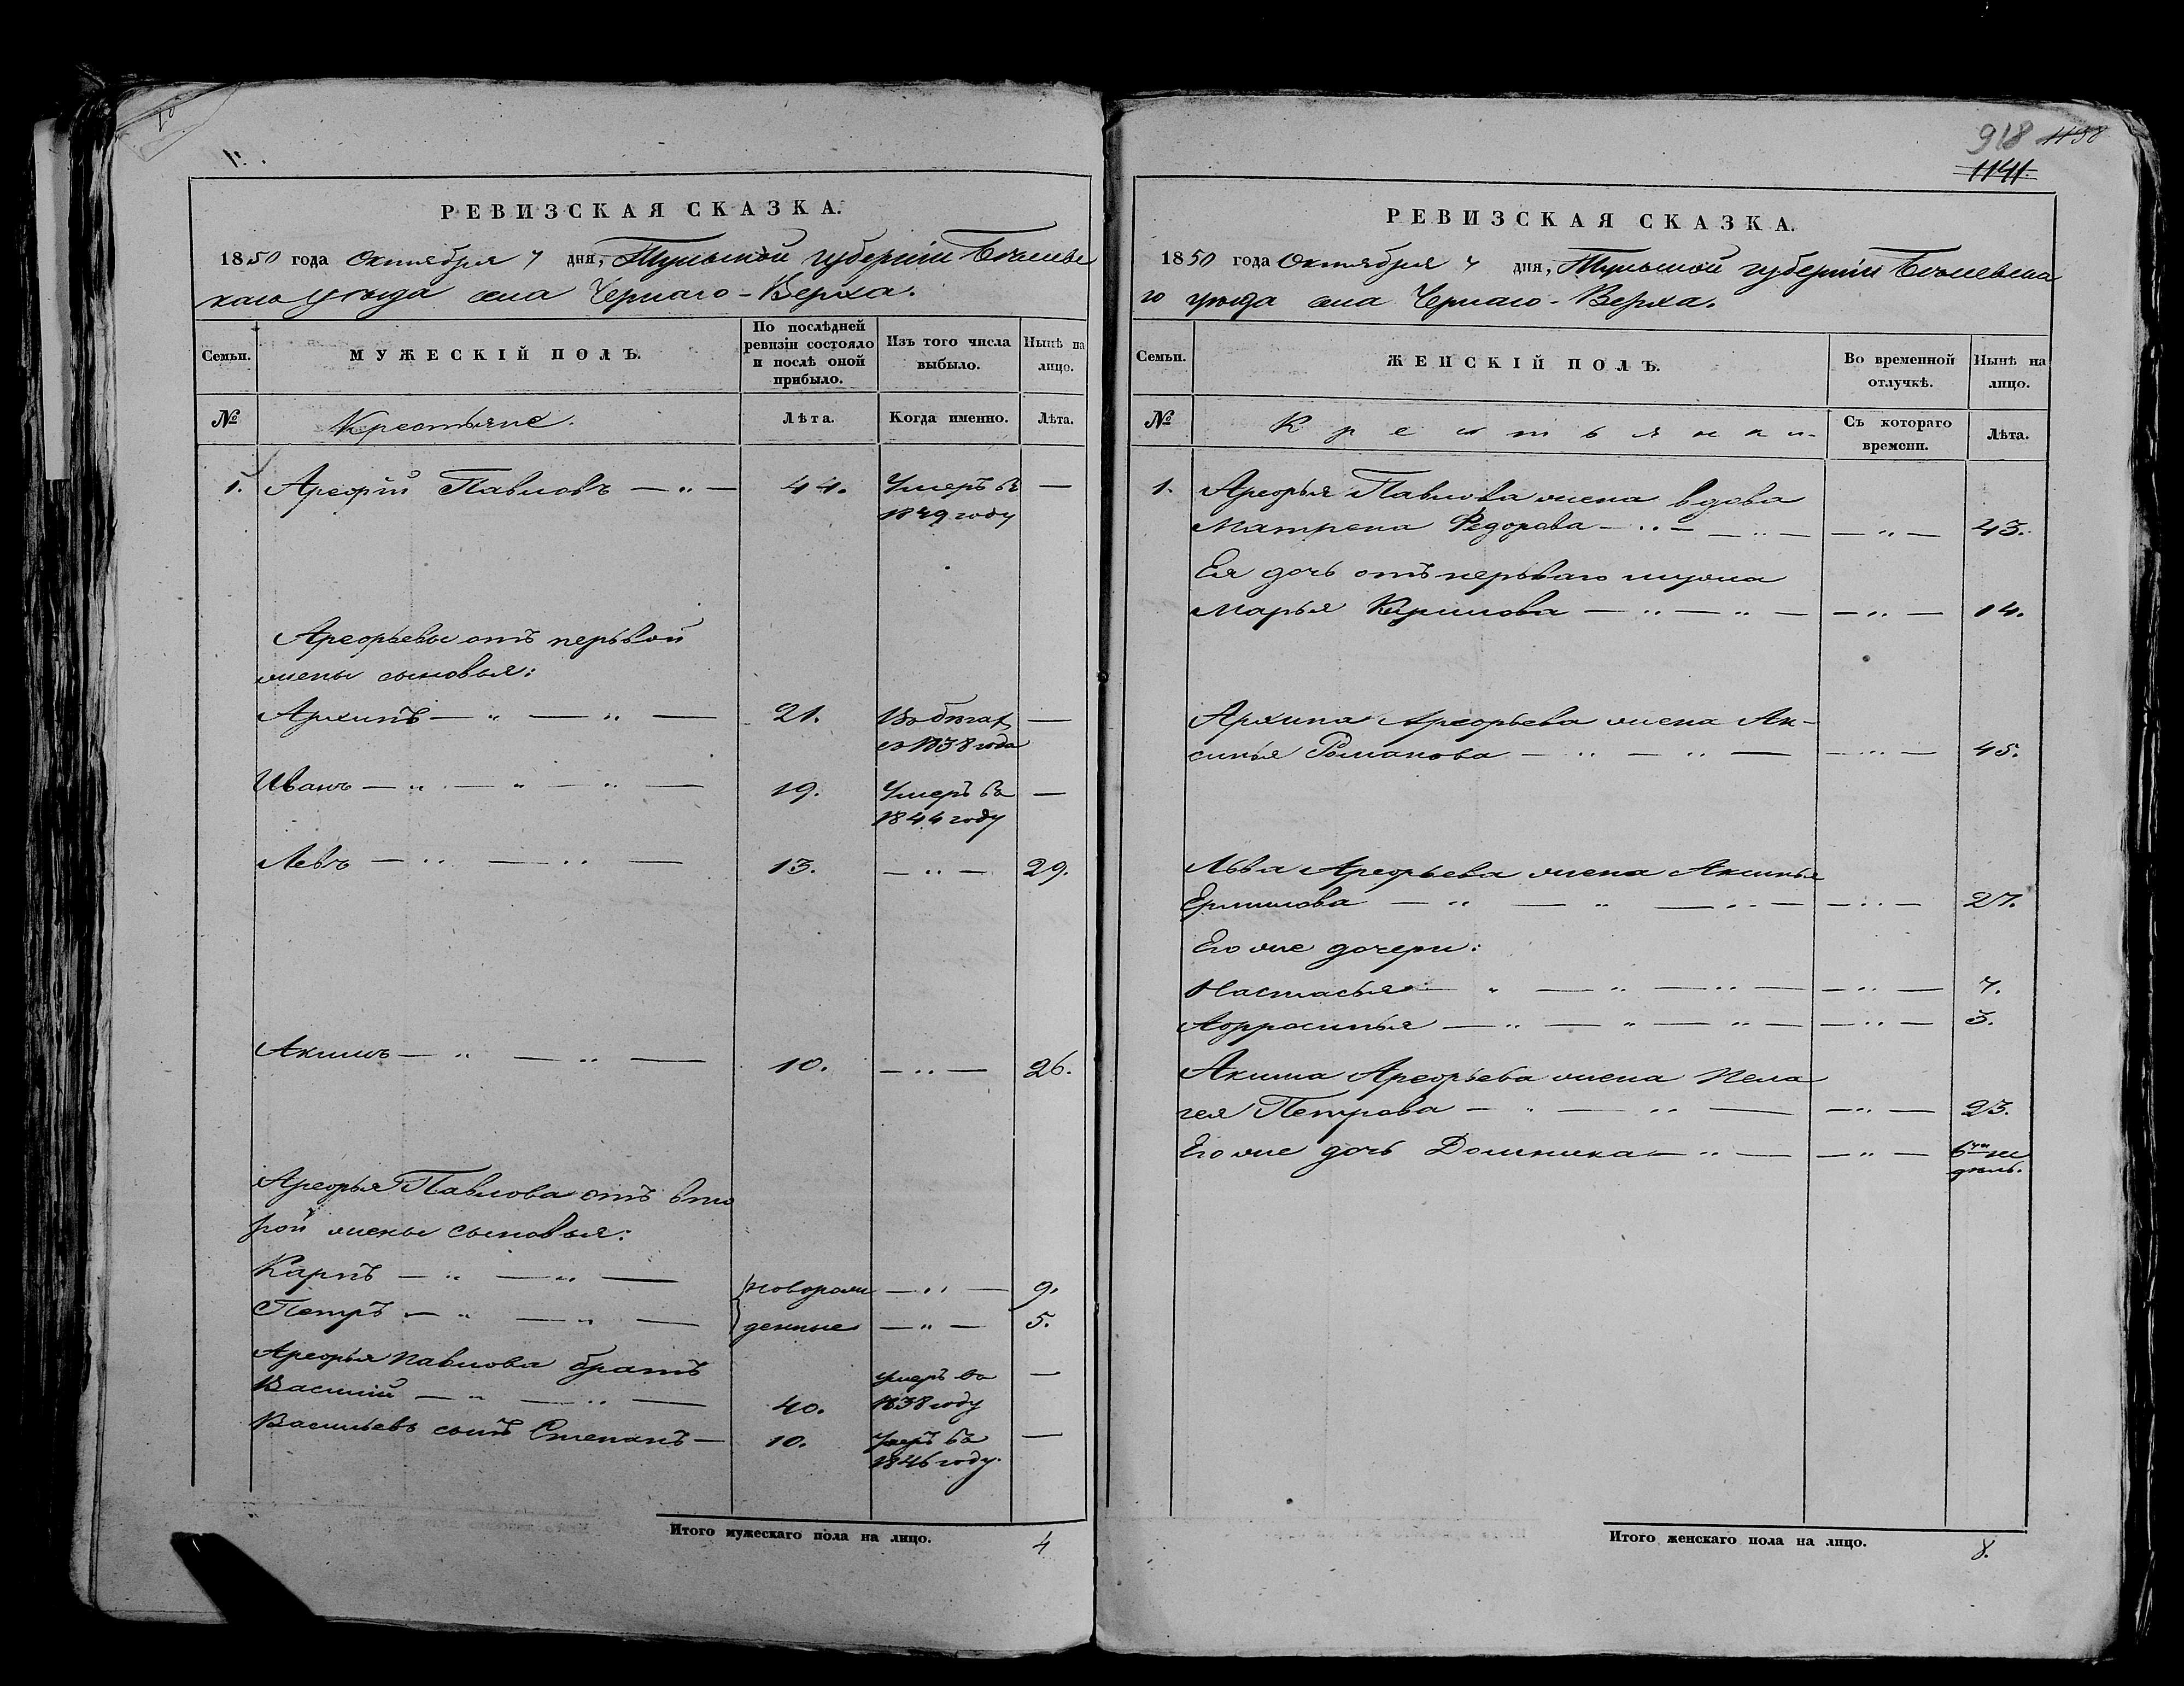 РЕВИЗСКАЯ СКАЗКА.
1850 года Октября 7 дня, Тульской губерніи Бѣлевс
каго уѣзда села Чернаго-Верха.
Семьи.
МУЖЕСКІЙ ПОЛЪ.
По послѣдней
ревизіи состояло
и послѣ оной
прибыло.
Изъ того числа
выбыло.
Нынѣ на
лицо.
№
Крестьяне.
Лѣта.
Когда именно.
Лѣта.
1. Арефій Павловъ — „ — 44. Умеръ въ —
1849 году
Арефьевы отъ первой
жены сыновья:
Архипъ — „ — „ — 21. Въ бѣгах —
съ 1838 года
Иванъ — „ — „ — „ — 19. Умеръ въ —
1844 году
Левъ — „ — „ — 13. — „ — 29.
Акимъ — „ — „ — 10. — „ — 26.
Арефья Павлова отъ вто
рой жены сыновья:
Карпъ — „ — „ — новорож — „ — 9.
Петръ — „ — „ — денные — „ — 5.
Арефья Павлова братъ
Василій — „ — „ — 40. умеръ въ —
1838 году
Васильевъ сынъ Степанъ — 10. Умеръ въ —
1846 году.
Итого мужескаго пола на лицо. 4
918 1138
1141
РЕВИЗСКАЯ СКАЗКА.
1850 года Октября 7 дня, Тульской губерніи Бѣлевска
го уѣзда села Чернаго-Верха.
Семьи.
ЖЕНСКІЙ ПОЛЪ.
Во временной
отлучкѣ.
Нынѣ на
лицо.
№
Крестьянки.
Съ котораго
времени.
Лѣта.
1. Арефья Павлова жена вдова
Матрена Федорова — „ — „ — — „ — 43.
Ея дочь отъ перваго мужа
Марья Кирилова — „ — „ — — „ — 14.
Архипа Арефьева жена Ак-
синья Романова — „ — „ — — „ — 45.
Льва Арефьева жена Аксинья
Ермилова — „ — „ — „ — — „ — 27.
Его же дочери:
Настасья — „ — „ — „ — — „ — 7.
Афросинья — „ — „ — „ — — „ — 3.
Акима Арефьева жена Пела
гея Петрова — „ — „ — — „ — 23.
Его же дочь Домника — „ — — „ — 6ти не
дѣль.
Итого женскаго пола на лицо. 8.